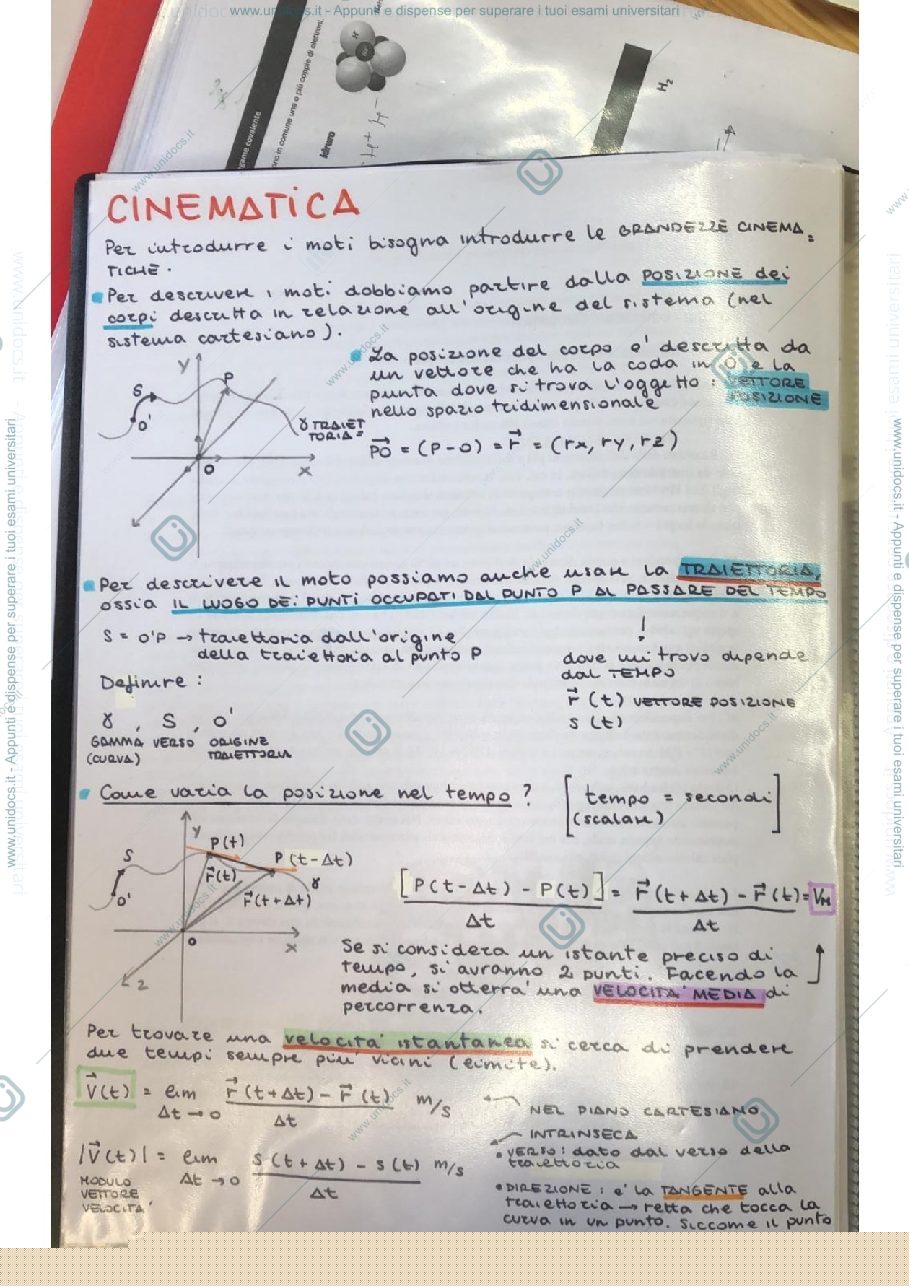 www.unidocs.it - Appunti e dispense per superare i tuoi esami universitari
H2
Idrogeno
CINEMATICA
Per introdurre i moti bisogna introdurre le GRANDEZZE CINEMA=
TICHE.
Per descrivere i moti dobbiamo partire dalla POSIZIONE dei
corpi descritta in relazione all'origine del sistema (nel
sistema cartesiano).
La posizione del corpo e' descritta da
un vettore che ha la coda in O e la
punta dove si trova l'oggetto : VETTORE
nello spazio tridimensionale POSIZIONE
y
S
P
O'
γ TRAIET
TORIA=
O
x
PO = (P-O) = r = (rx, ry, rz)
Per descrivere il moto possiamo anche usare la TRAIETTORIA,
ossia IL LUOGO DEI PUNTI OCCUPATI DAL PUNTO P AL PASSARE DEL TEMPO
S = O'P → traiettoria dall'origine
della traiettoria al punto P
!
dove mi trovo dipende
dal TEMPO
r (t) VETTORE POSIZIONE
S (t)
Definire :
γ , S , O'
GAMMA VERSO ORIGINE
(CURVA) TRAIETTORIA
Come varia la posizione nel tempo ?
[tempo = secondi
(scalare)]
y
P(t)
S
P (t-Δt)
r(t)
γ
r(t+Δt)
O'
O
x
z
[P(t-Δt) - P(t)] = r(t+Δt) - r(t) = VM
Δt Δt
Se si considera un istante preciso di
tempo, si avranno 2 punti. Facendo la
media si otterra' una VELOCITA' MEDIA di
percorrenza.
Per trovare una velocita' istantanea si cerca di prendere
due tempi sempre piu' vicini (limite).
V(t) = lim r(t+Δt) - r(t) m/s
Δt→0 Δt
NEL PIANO CARTESIANO
INTRINSECA
|V(t)| = lim S(t+Δt) - S(t) m/s
MODULO Δt→0 Δt
VETTORE
VELOCITA'
• VERSO: dato dal verso della
traiettoria
• DIREZIONE : e' la TANGENTE alla
traiettoria → retta che tocca la
curva in un punto. Siccome il punto